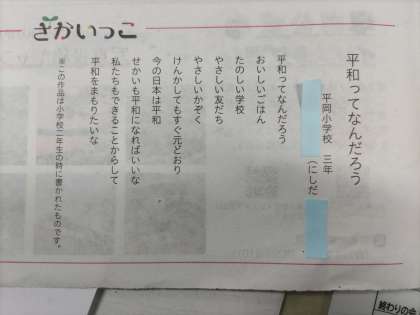 さかいっこ
平和ってなんだろう
平岡小学校 三年
(にしだ
平和ってなんだろう
おいしいごはん
たのしい学校
やさしい友だち
やさしいかぞく
けんかしてもすぐ元どおり
今の日本は平和
せかいも平和になればいいな
私たちもできることからして
平和をまもりたいな
※この作品は小学校二年生の時に書かれたものです。
終わりの会